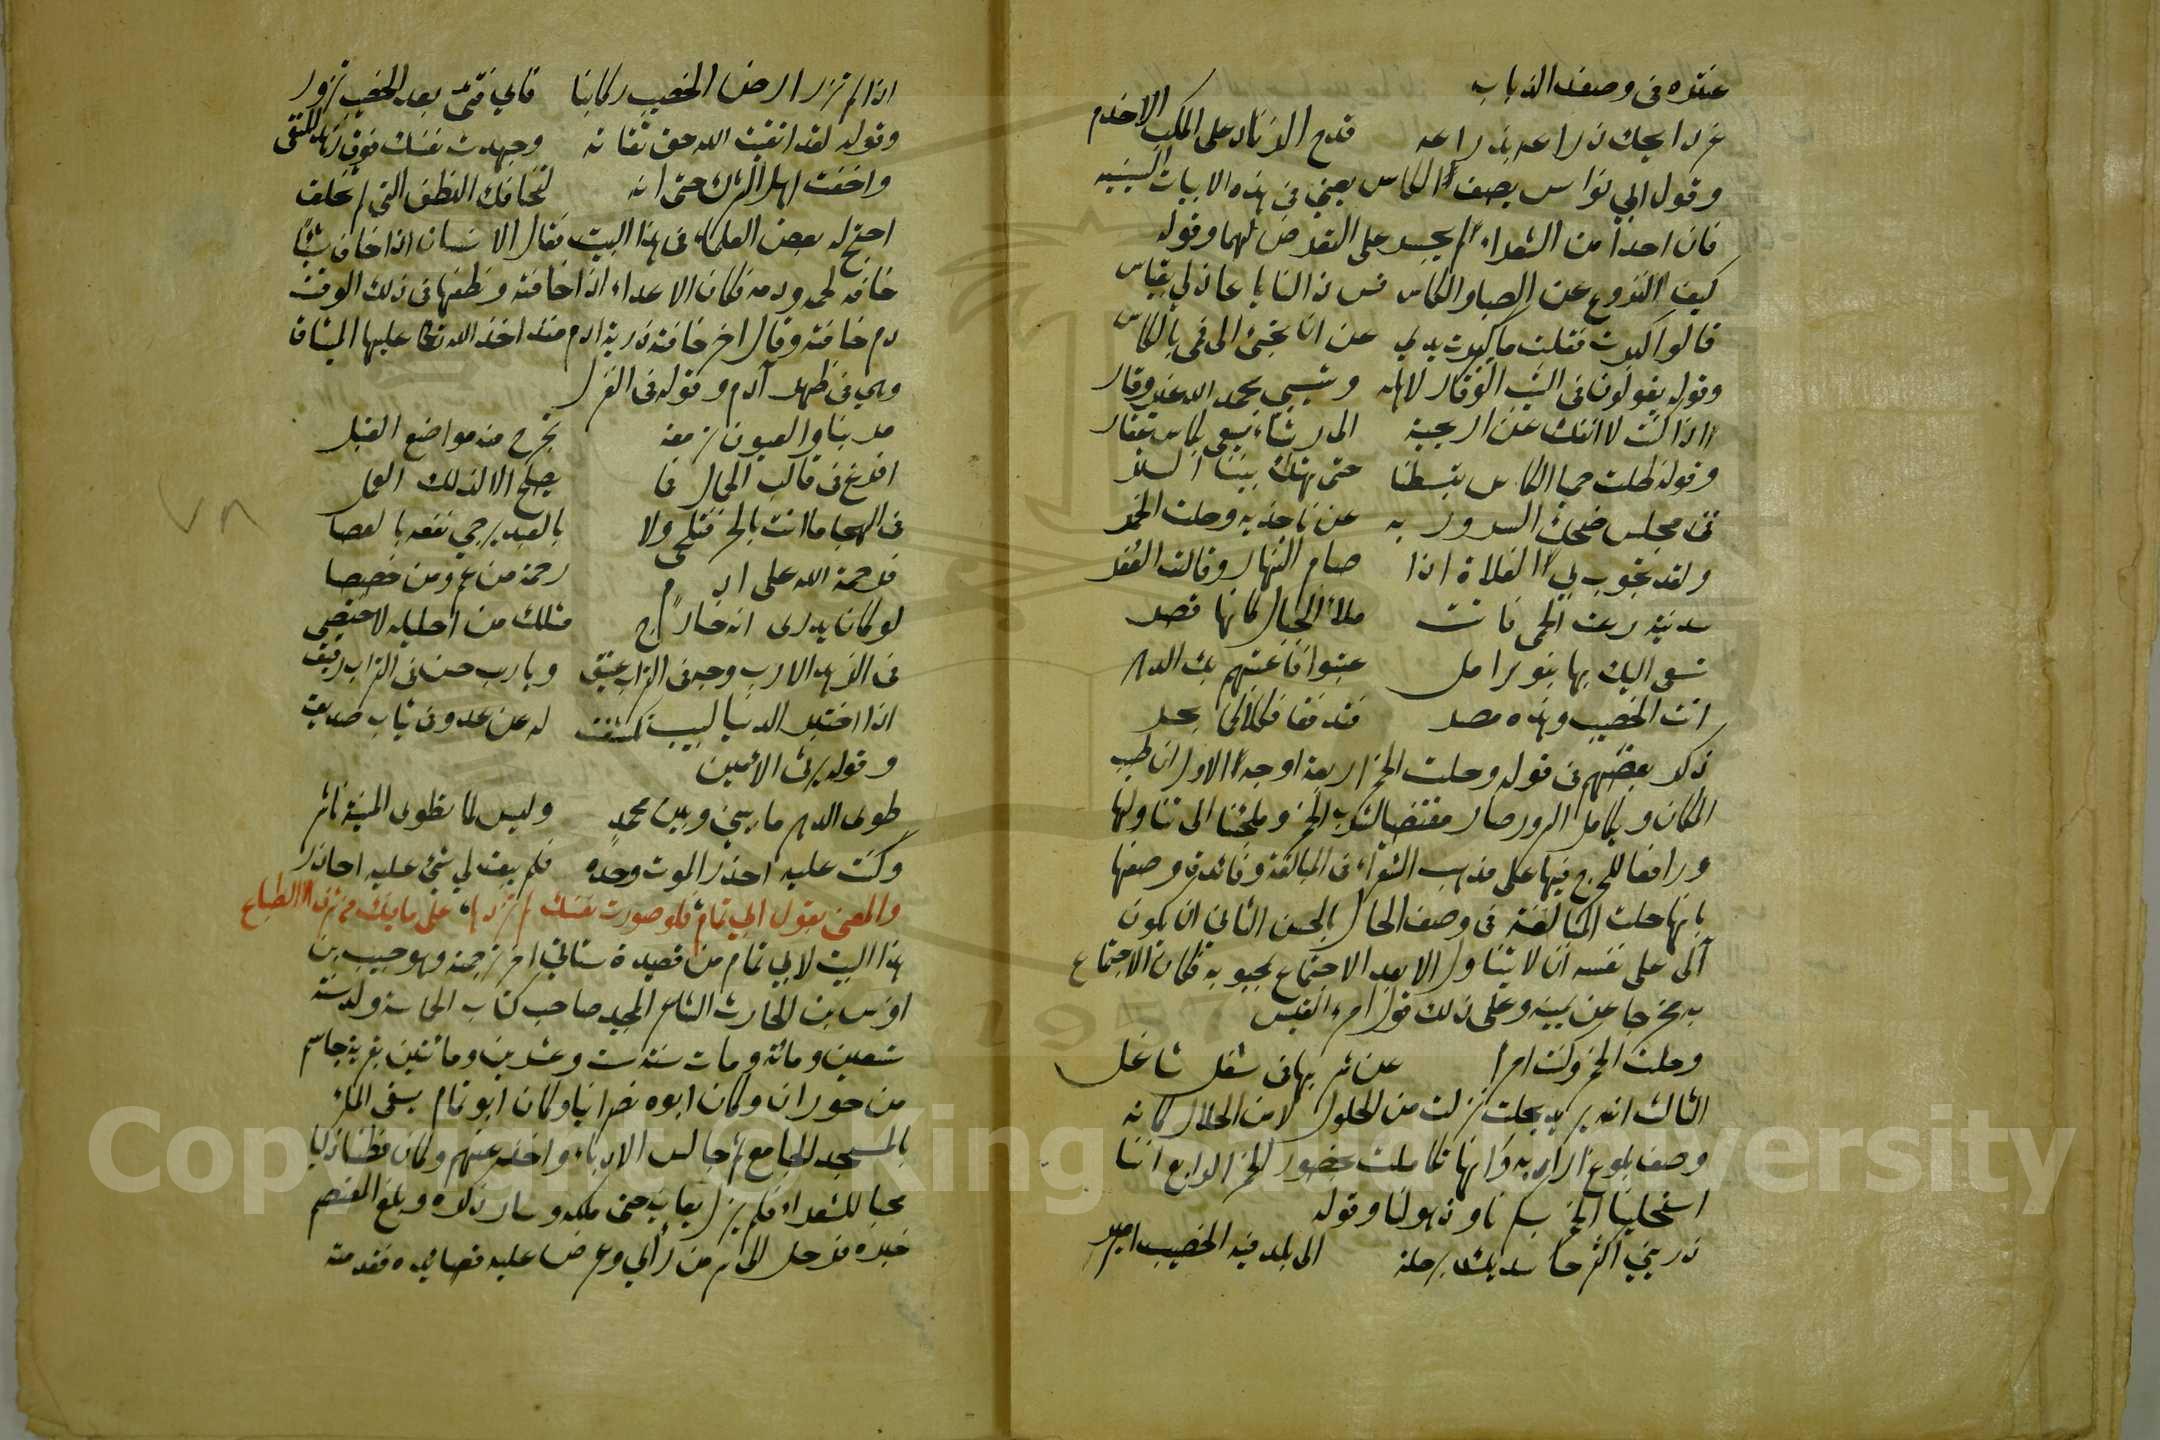 عنتره فى وصف الذباب
غردا يحك ذراعه بذراعه قدح الزناد على المكب الاخدم
وقول ابي نواس يصف الكاس يعني فى هذه الابيات السينيه
فان احدا من الشعراء لم يجسر على التعرض لهما وقوله
كيف النزوع عن الصبا والكاس قس ذا لنا يا عاذلي بقياس
قالوا كبرت فقلت ما كبرت يدي عن ان تجئ الى فمي بالكاس
وقوله يقولون فى الشيب الوقار لاهله وشيبي بحمد الله غير وقار
اذا كنت لا انفك عن اريحية الى رشاء يسعى بكاس عقار
وقوله ظلت حميا الكاس تبسطنا حتى تهتك بيننا الستر
فى مجلس ضحك السرور به عن ناجذيه وحلت الخمر
ولقد تجوب بي الفلاة اذا صام النهار وقالت العفر
شدنية رعت الحمى فاتت ملأ الجبال كانها قصر
تسعى اليك بها بنو امل عتبوا فاعتبهم بك الدهر
انت الخصيب وهذه مصر فتدفقا فكلاكما بحر
ذكر بعضهم فى قوله وحلت الخمر اربعة اوجه الاول ان طيب
المكان وتكامل السرور صار مقتضيا لشرب الخمر وملجئا الى تناولها
ورافعا للحرج فيها على مذهب الشعراء فى المبالغة وفائدة وصفها
بانها حلت المبالغة فى وصف الحال بالحسن الثانى ان يكون
آلى على نفسه ان لا يتناول الا بعد الاجتماع بمحبوبه فكان الاجتماع
به مخرجا عن يمينه وعلى ذلك قول امرء القيس
وحلت الخمر وكنت امرا عن شربها فى شغل شاغل
الثالث انه يريد بحلت نزلت من الحلول لا من الحلال كانه
وصف بلوغ آرابه وانها تكاملت بحضور الخمر الرابع اننا
استحلينا الخمر بسكرنا وذهولنا وقوله
ذريني اكثر حاسديك برحلة الى بلد فيه الخصيب امير
اذا لم تزر ارض الخصيب ركابنا فاي فتى بعد الخصيب تزور
وقوله لقد اتقيت الله حق تقاته وجهدت نفسك فوق جهد المتقى
واخفت اهل الشرك حتى انه لتخافك النطف التي لم تخلق
احتج له بعض العلماء فى هذا البيت فقال الانسان اذا خاف شيئا
خافه لحمه ودمه فكان الاعداء اذا خافته ونطفها فى ذلك الوقت
دم خافته وقال اخر خافته ذرية ادم منذ اخذ الله تعالى عليها الميثاق
وهي فى ظهر آدم وقوله فى الغزل
مر بنا والعيون ترمقه تجرح منه مواضع القبل
افرغ فى قالب الجمال فما يصلح الا لذلك العمل
فى الهجا ما انت بالحر فتلحى ولا بالعبد يرجى نفعه بالعصا
فرحمة الله على ادم رحمة من عم ومن خصصا
لو كان يدرى انه خارج مثلك من احليله لاختصى
فى الزهد الا رب وجه فى التراب عتيق ويا رب حسن فى التراب رقيق
اذا اختبر الدنيا لبيب تكشفت له عن عدو فى ثياب صديق
وقوله يرثى الامين
طوى الدهر ما بيني وبين محمد وليس لما تطوى المنية ناشر
وكنت عليه احذر الموت وحده فلم يبق لي شئ عليه احاذر
والمعنى بقول ابي تمام فلو صورت نفسك لم تزدها على ما فيك من شرف الطباع
هذا البيت لابي تمام من قصيدة ستاتي اخر ترجمته وهو حبيب بن
اوس بن الحارث الشاعر المجيد صاحب كتاب الحماسة ولد سنة
تسعين ومائة ومات سنة ست وعشرين ومائتين بقرية جاسم
من حوران وكان ابوه نصرانيا وكان ابو تمام يسقى الماء
بالمسجد الجامع ثم جالس الادباء واخذ عنهم وكان فطنا ذكيا
محبا للشعراء فلم يزل يعانيه حتى ملكه وسار ذكره وبلغ المعتصم
خبره فرحل اليه من رأي وعرض عليه قصائده فقدمه